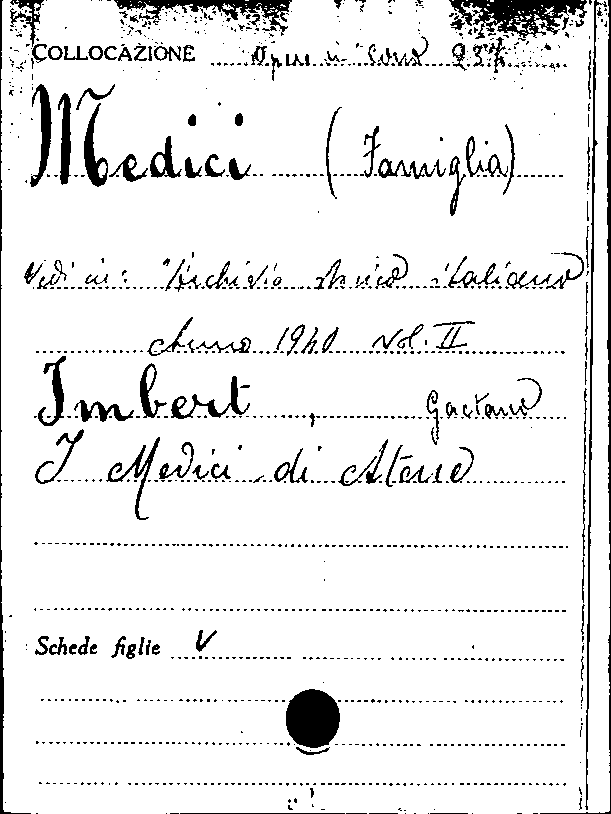 COLLOCAZIONE Opere in Corso 237
Medici (Famiglia)
Vedi in: Archivio storico italiano
Anno 1940 Vol. II
Imbert, Gaetano
I Medici di Atene
Schede figlie V